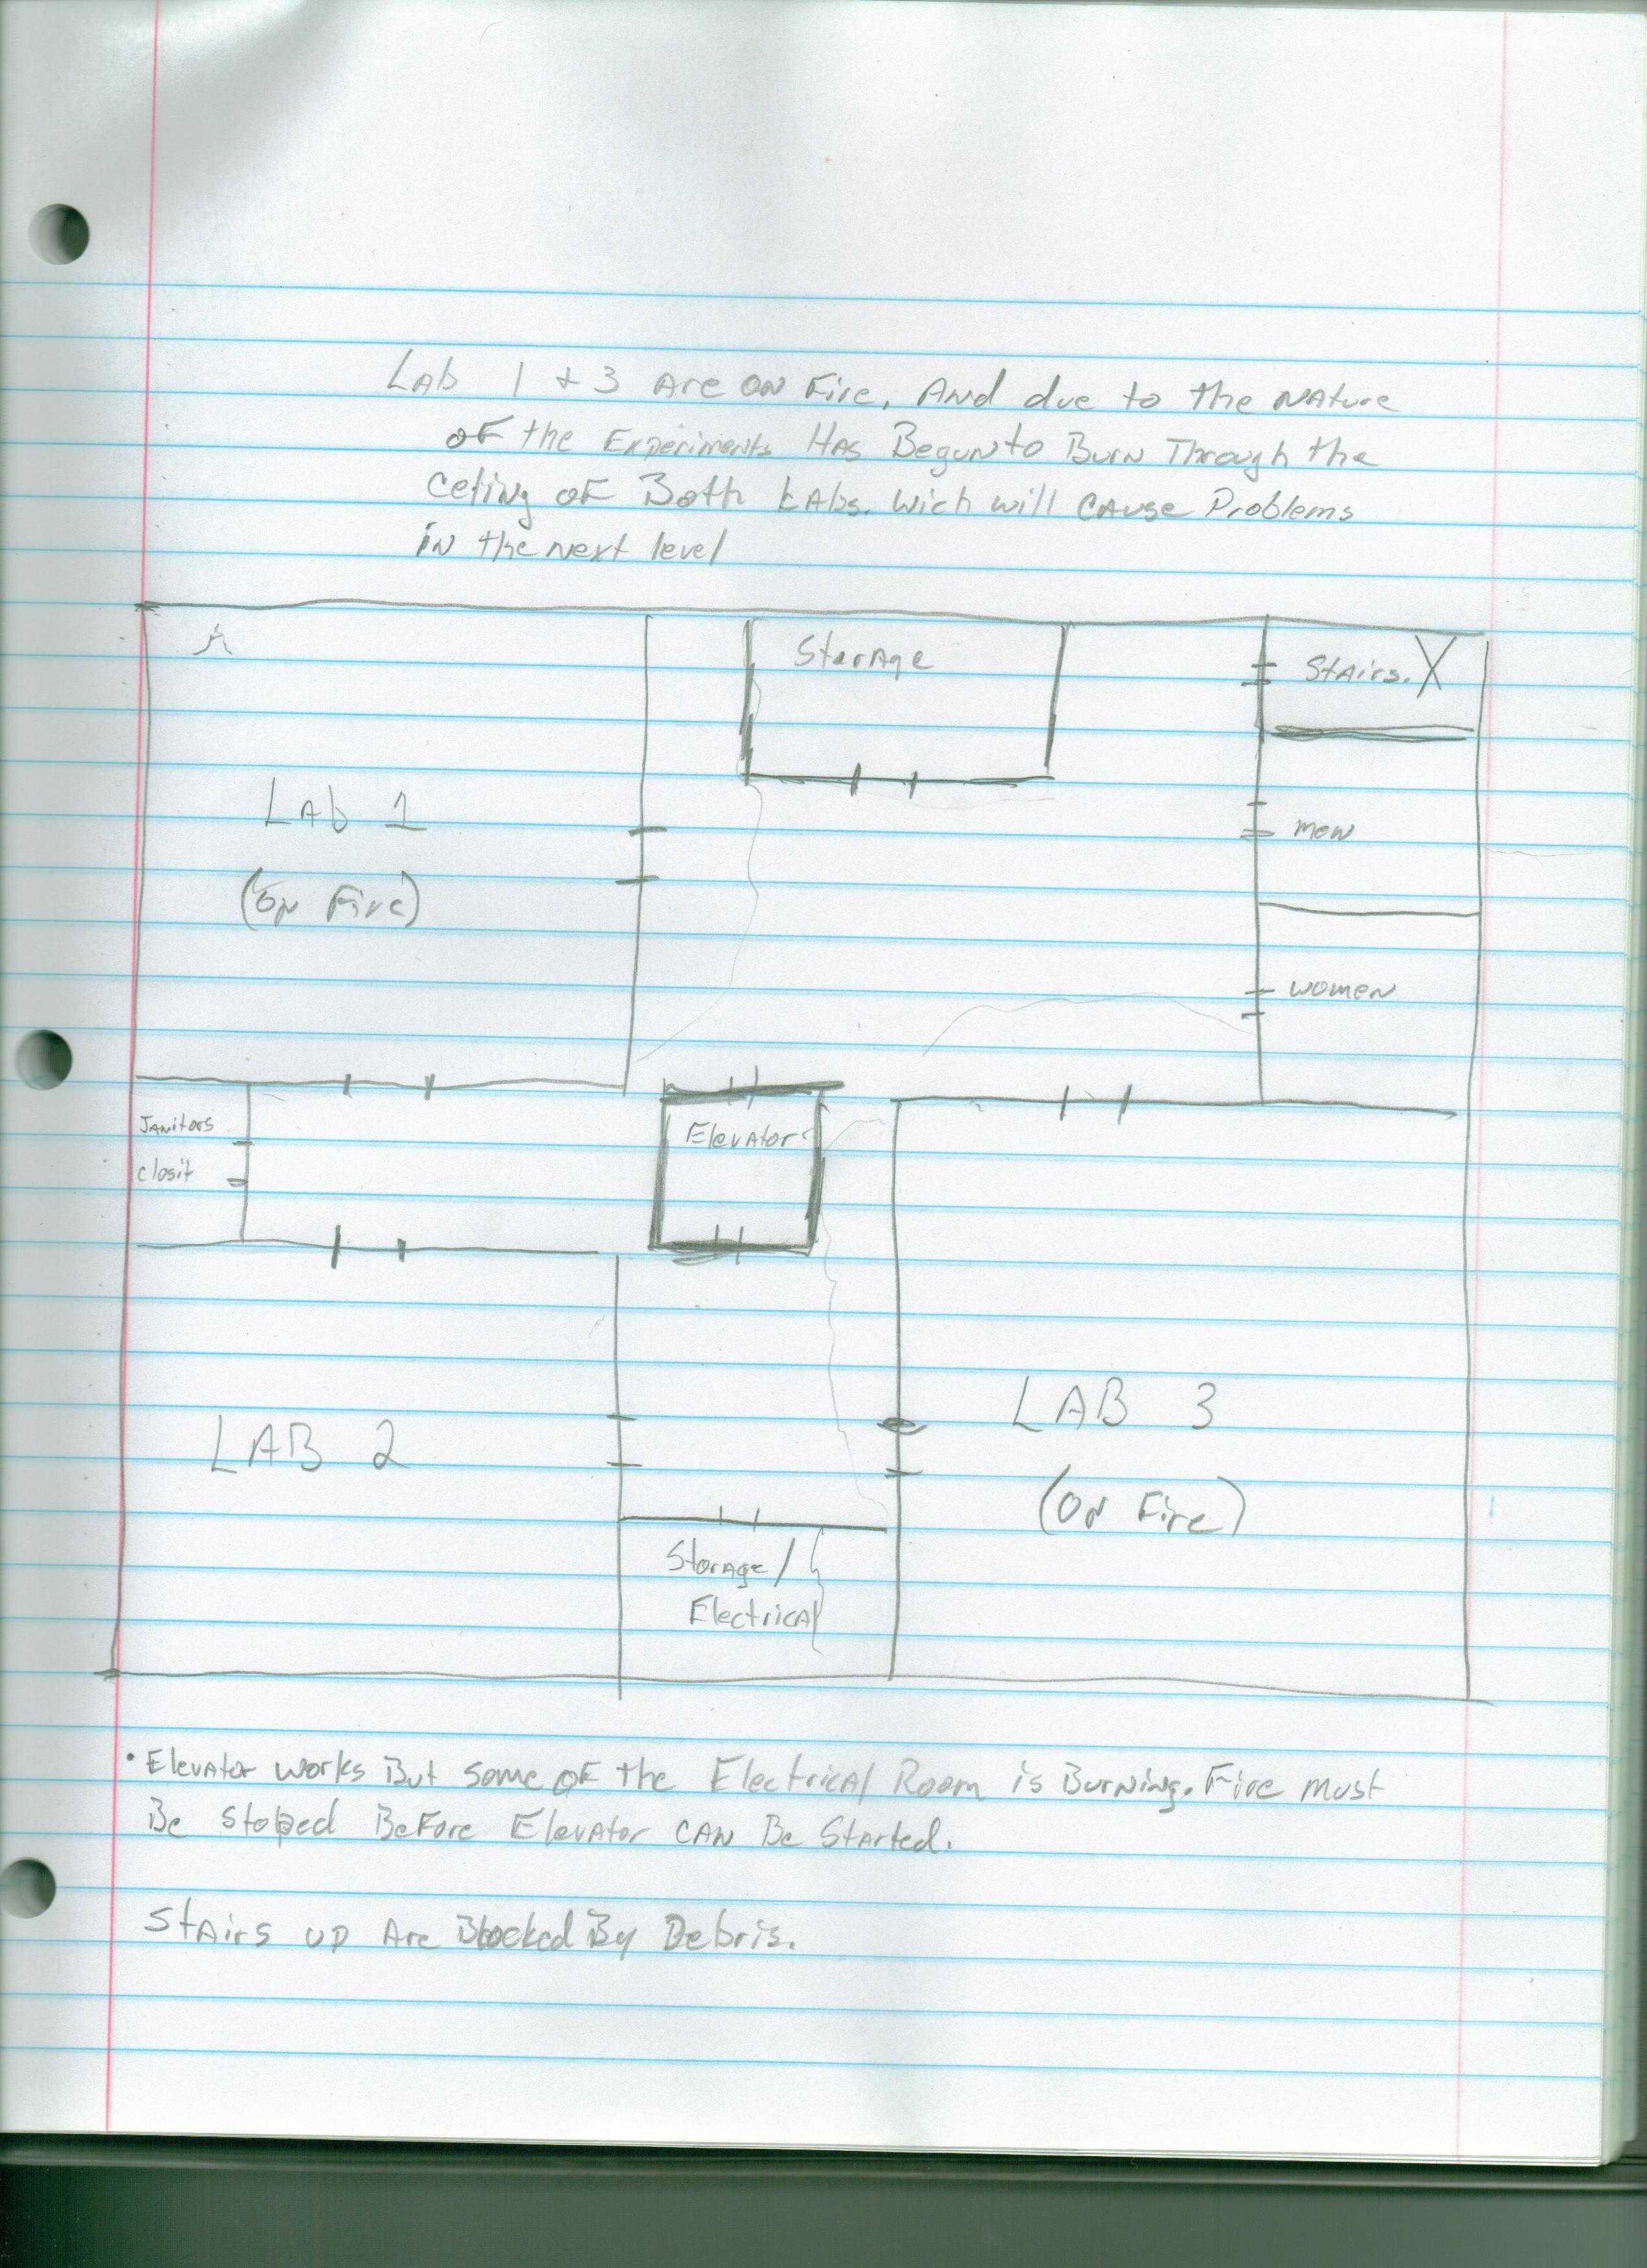 Lab 1 + 3 Are on Fire, And due to the Nature
of the Experiments Has Begun to Burn Through the
Celing of Both Labs. Wich will cause Problems
in the next level
Storage
Stairs. X
Lab 1
(On Fire)
men
women
Janitors
closit
Elevator
LAB 2
LAB 3
(On Fire)
Storage /
Electrical
• Elevator works But some of the Electrical Room is Burning. Fire must
Be stoped Before Elevator can Be Started.
Stairs up Are Blocked By Debris.